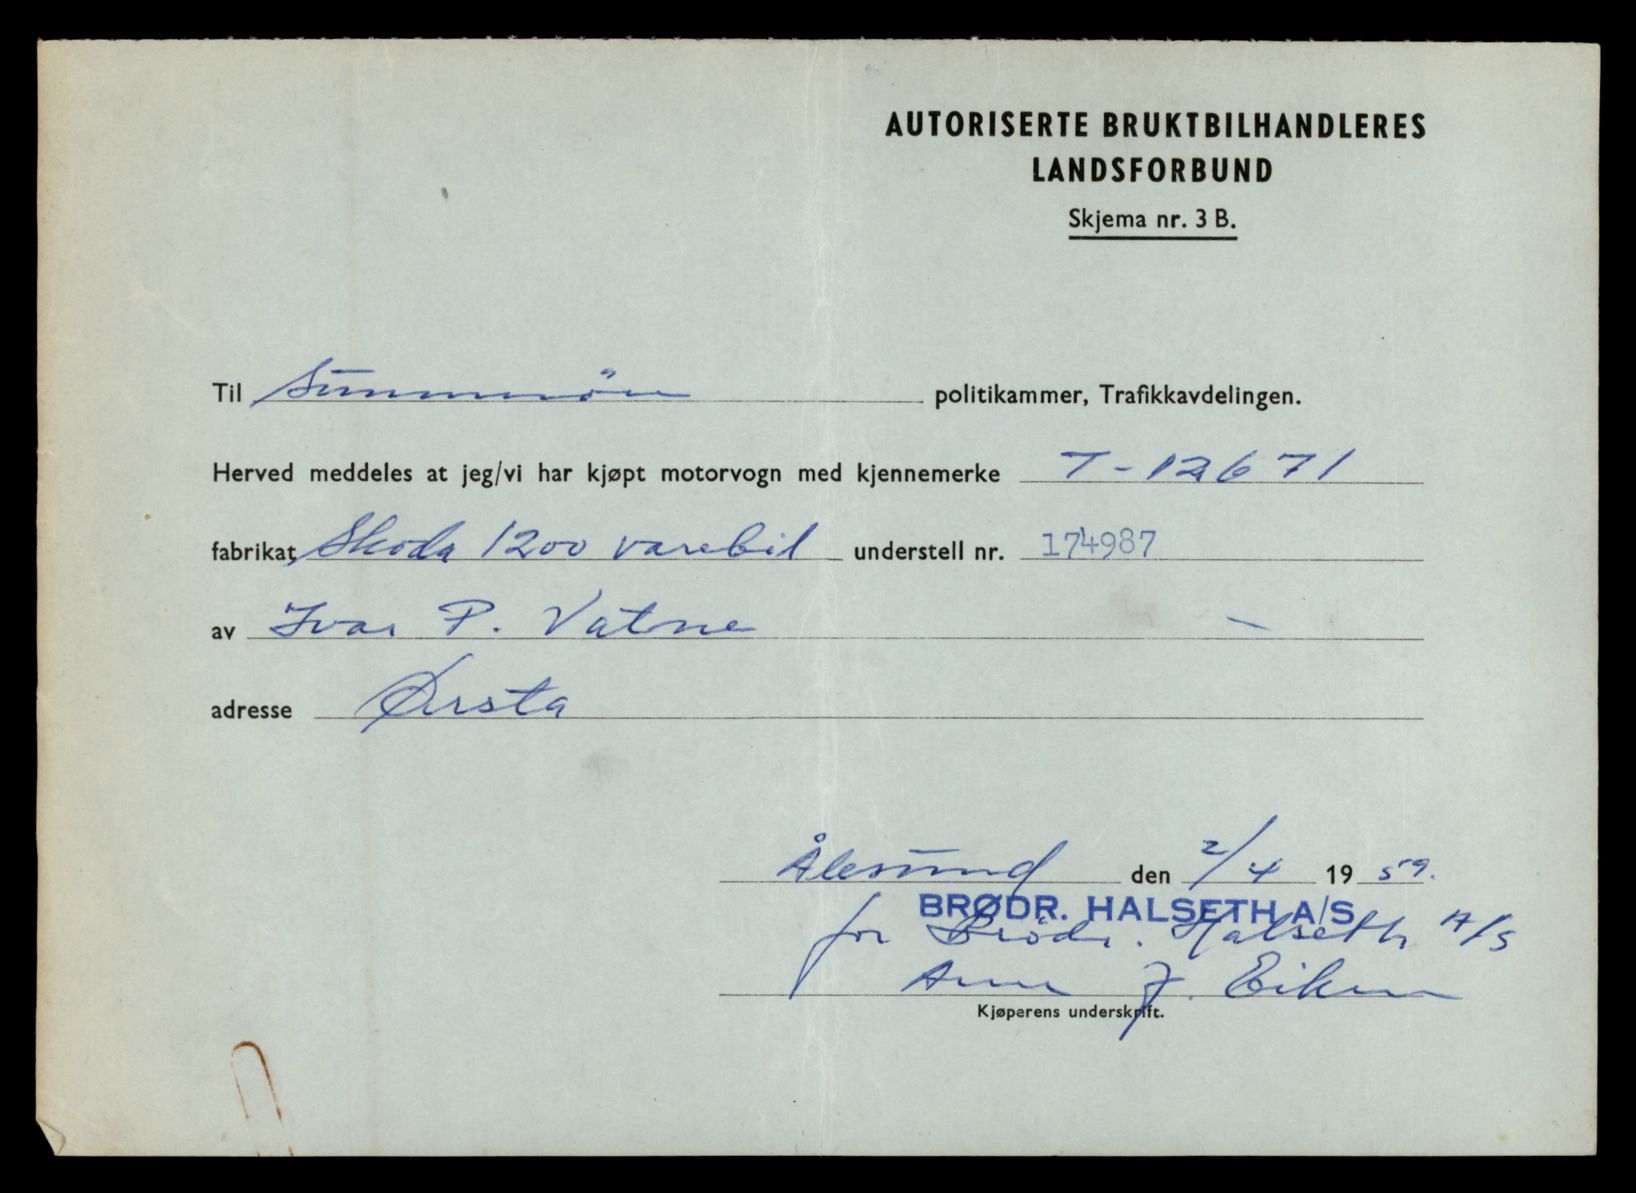 AUTORISERTE BRUKTBILHANDLERES
LANDSFORBUND
Skjema nr. 3 B.
Til Sunnmöre politikammer, Trafikkavdelingen.
Herved meddeles at jeg/vi har kjøpt motorvogn med kjennemerke T-12671
fabrikat, Skoda 1200 varebil understell nr. 174987
av Ivar P. Vatne
adresse Ørsta
Ålesund den 2/4 1959.
BRØDR. HALSETH A/S
for Brödr. Halseth A/S
J. Eikrem
Kjøperens underskrift.